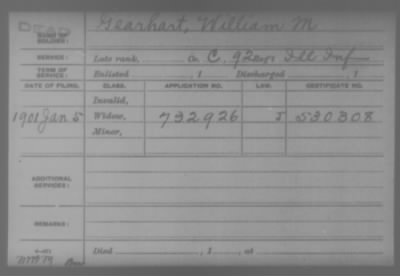 DEAD
NAME OF SOLDIER: Gearhart, William M
SERVICE: Late rank, Co. C, 92 Reg't Ill Inf
TERM OF SERVICE: Enlisted , 1 Discharged , 1
DATE OF FILING. CLASS. APPLICATION NO. LAW. CERTIFICATE NO.
Invalid,
1901 Jan 5 Widow, 732926 J 530308
Minor,
ADDITIONAL SERVICES:
REMARKS:
Died , 1 , at